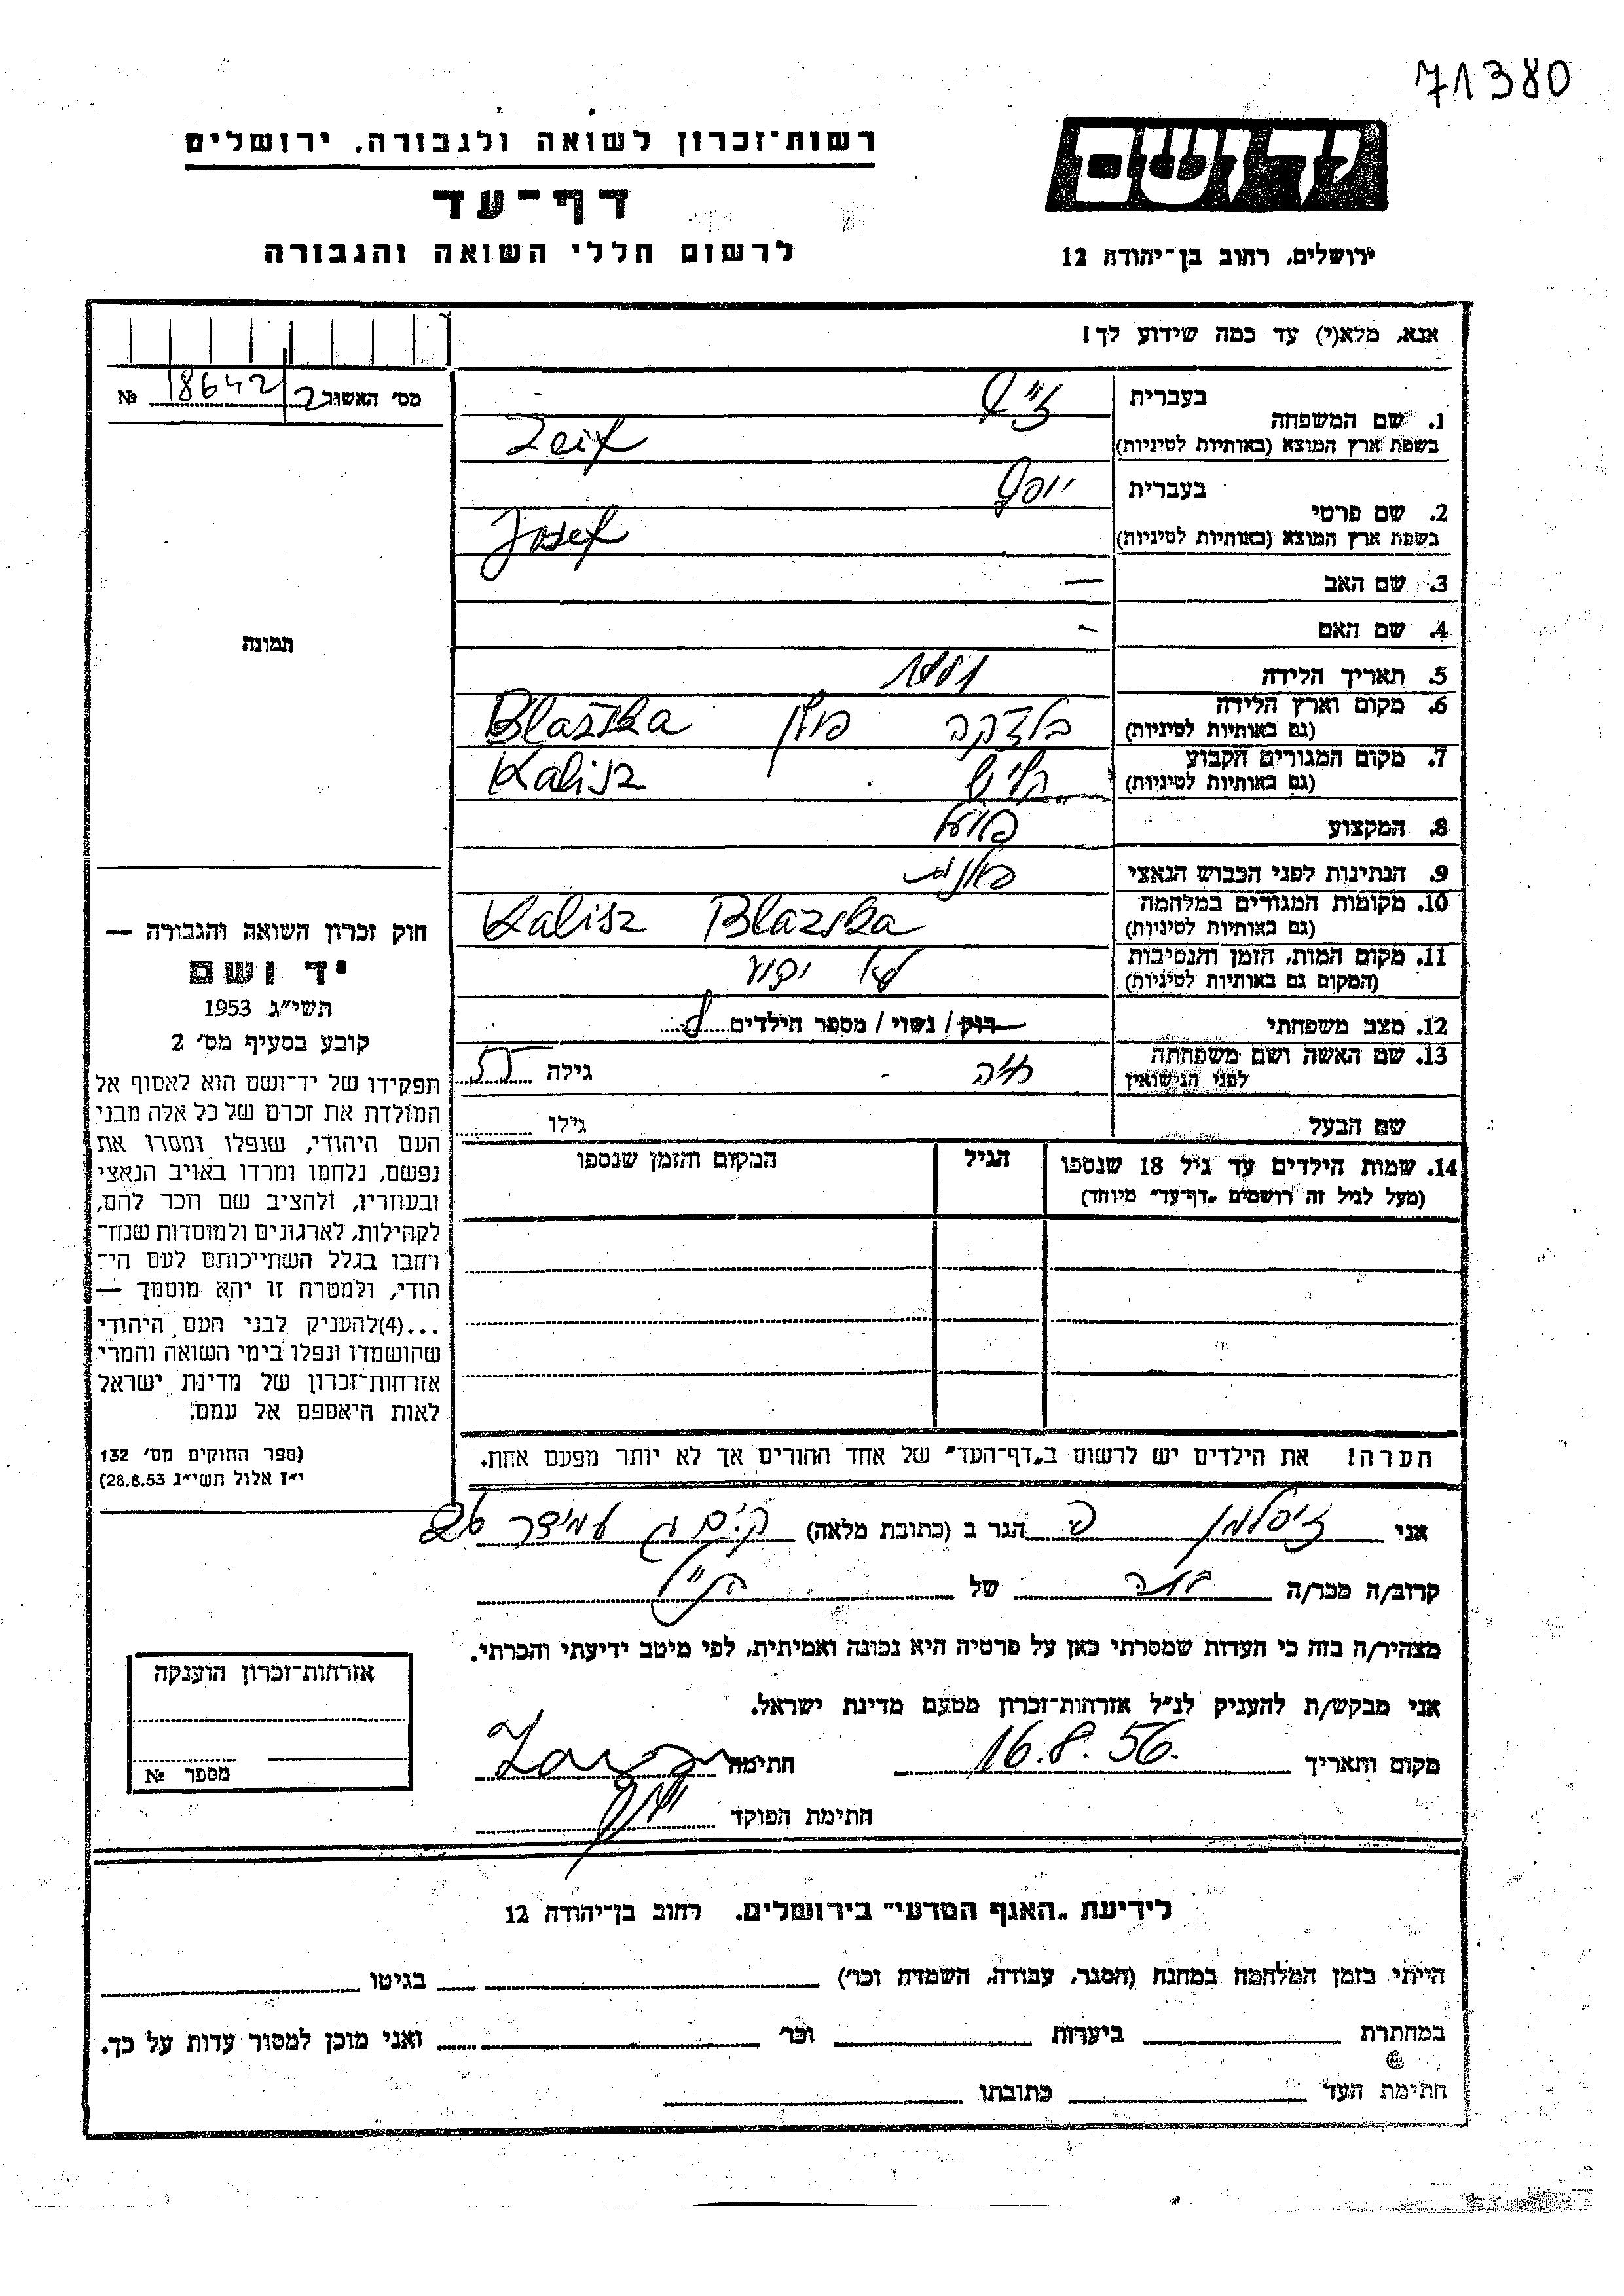 71380
יד ושם
רשות־זכרון לשואה ולגבורה, ירושלים
דף־עד
לרשום חללי השואה והגבורה
ירושלים, רחוב בן־יהודה 12
אנא, מלא(י) עד כמה שידוע לך!
מס׳ האשור 18642/2 №
1. שם המשפחה
בעברית זייף
בשפת ארץ המוצא (באותיות לטיניות) Zeif
2. שם פרטי
בעברית יוסף
בשפת ארץ המוצא (באותיות לטיניות) Josef
3. שם האב —
4. שם האם -
5. תאריך הלידה 1881
6. מקום וארץ הלידה
(גם באותיות לטיניות) פולין Blaszka
7. מקום המגורים הקבוע
(גם באותיות לטיניות) קליש Kalisz
8. המקצוע פועל
9. הנתינות לפני הכבוש הנאצי פולנית
10. מקומות המגורים במלחמה
(גם באותיות לטיניות) Kalisz Blazska
11. מקום המות, הזמן והנסיבות
(המקום גם באותיות לטיניות) לא ידוע
12. מצב משפחתי רוק / נשוי / מספר הילדים
13. שם האשה ושם משפחתה
לפני הנישואין חיה גילה 55
שם הבעל גילו
14. שמות הילדים עד גיל 18 שנספו הגיל המקום והזמן שנספו
(מעל לגיל זה רושמים „דף־עד״ מיוחד)
הערה! את הילדים יש לרשום ב„דף־העד״ של אחד ההורים אך לא יותר מפעם אחת.
תמונה
חוק זכרון השואה והגבורה —
יד ושם
תשי״ג 1953
קובע בסעיף מס׳ 2
תפקידו של יד־ושם הוא לאסוף אל
המולדת את זכרם של כל אלה מבני
העם היהודי, שנפלו ומסרו את
נפשם, נלחמו ומרדו באויב הנאצי
ובעוזריו, ולהציב שם וזכר להם,
לקהילות, לארגונים ולמוסדות שנח־
רבו בגלל השתייכותם לעם הי־
הודי, ולמטרה זו יהא מוסמך —
...(4)להעניק לבני העם היהודי
שהושמדו ונפלו בימי השואה והמרי
אזרחות־זכרון של מדינת ישראל
לאות היאספם אל עמם.
(ספר החוקים מס׳ 132
י״ז אלול תשי״ג 28.8.53)
אני זיסלמן פ הגר ב (כתובת מלאה) ק.ים ג עמידר 26
קרוב/ה מכר/ה של הנ״ל
מצהיר/ה בזה כי העדות שמסרתי כאן על פרטיה היא נכונה ואמיתית, לפי מיטב ידיעתי והכרתי.
אני מבקש/ת להעניק לנ״ל אזרחות־זכרון מטעם מדינת ישראל.
מקום ותאריך 16.8.56. חתימה
חתימת הפוקד
אזרחות־זכרון הוענקה
מספר №
לידיעת „האגף המדעי״ בירושלים. רחוב בן־יהודה 12
הייתי בזמן המלחמה במחנה (הסגר, עבודה, השמדה וכו׳) בגיטו
במחתרת ביערות וכו׳ ואני מוכן למסור עדות על כך.
חתימת העד כתובתו